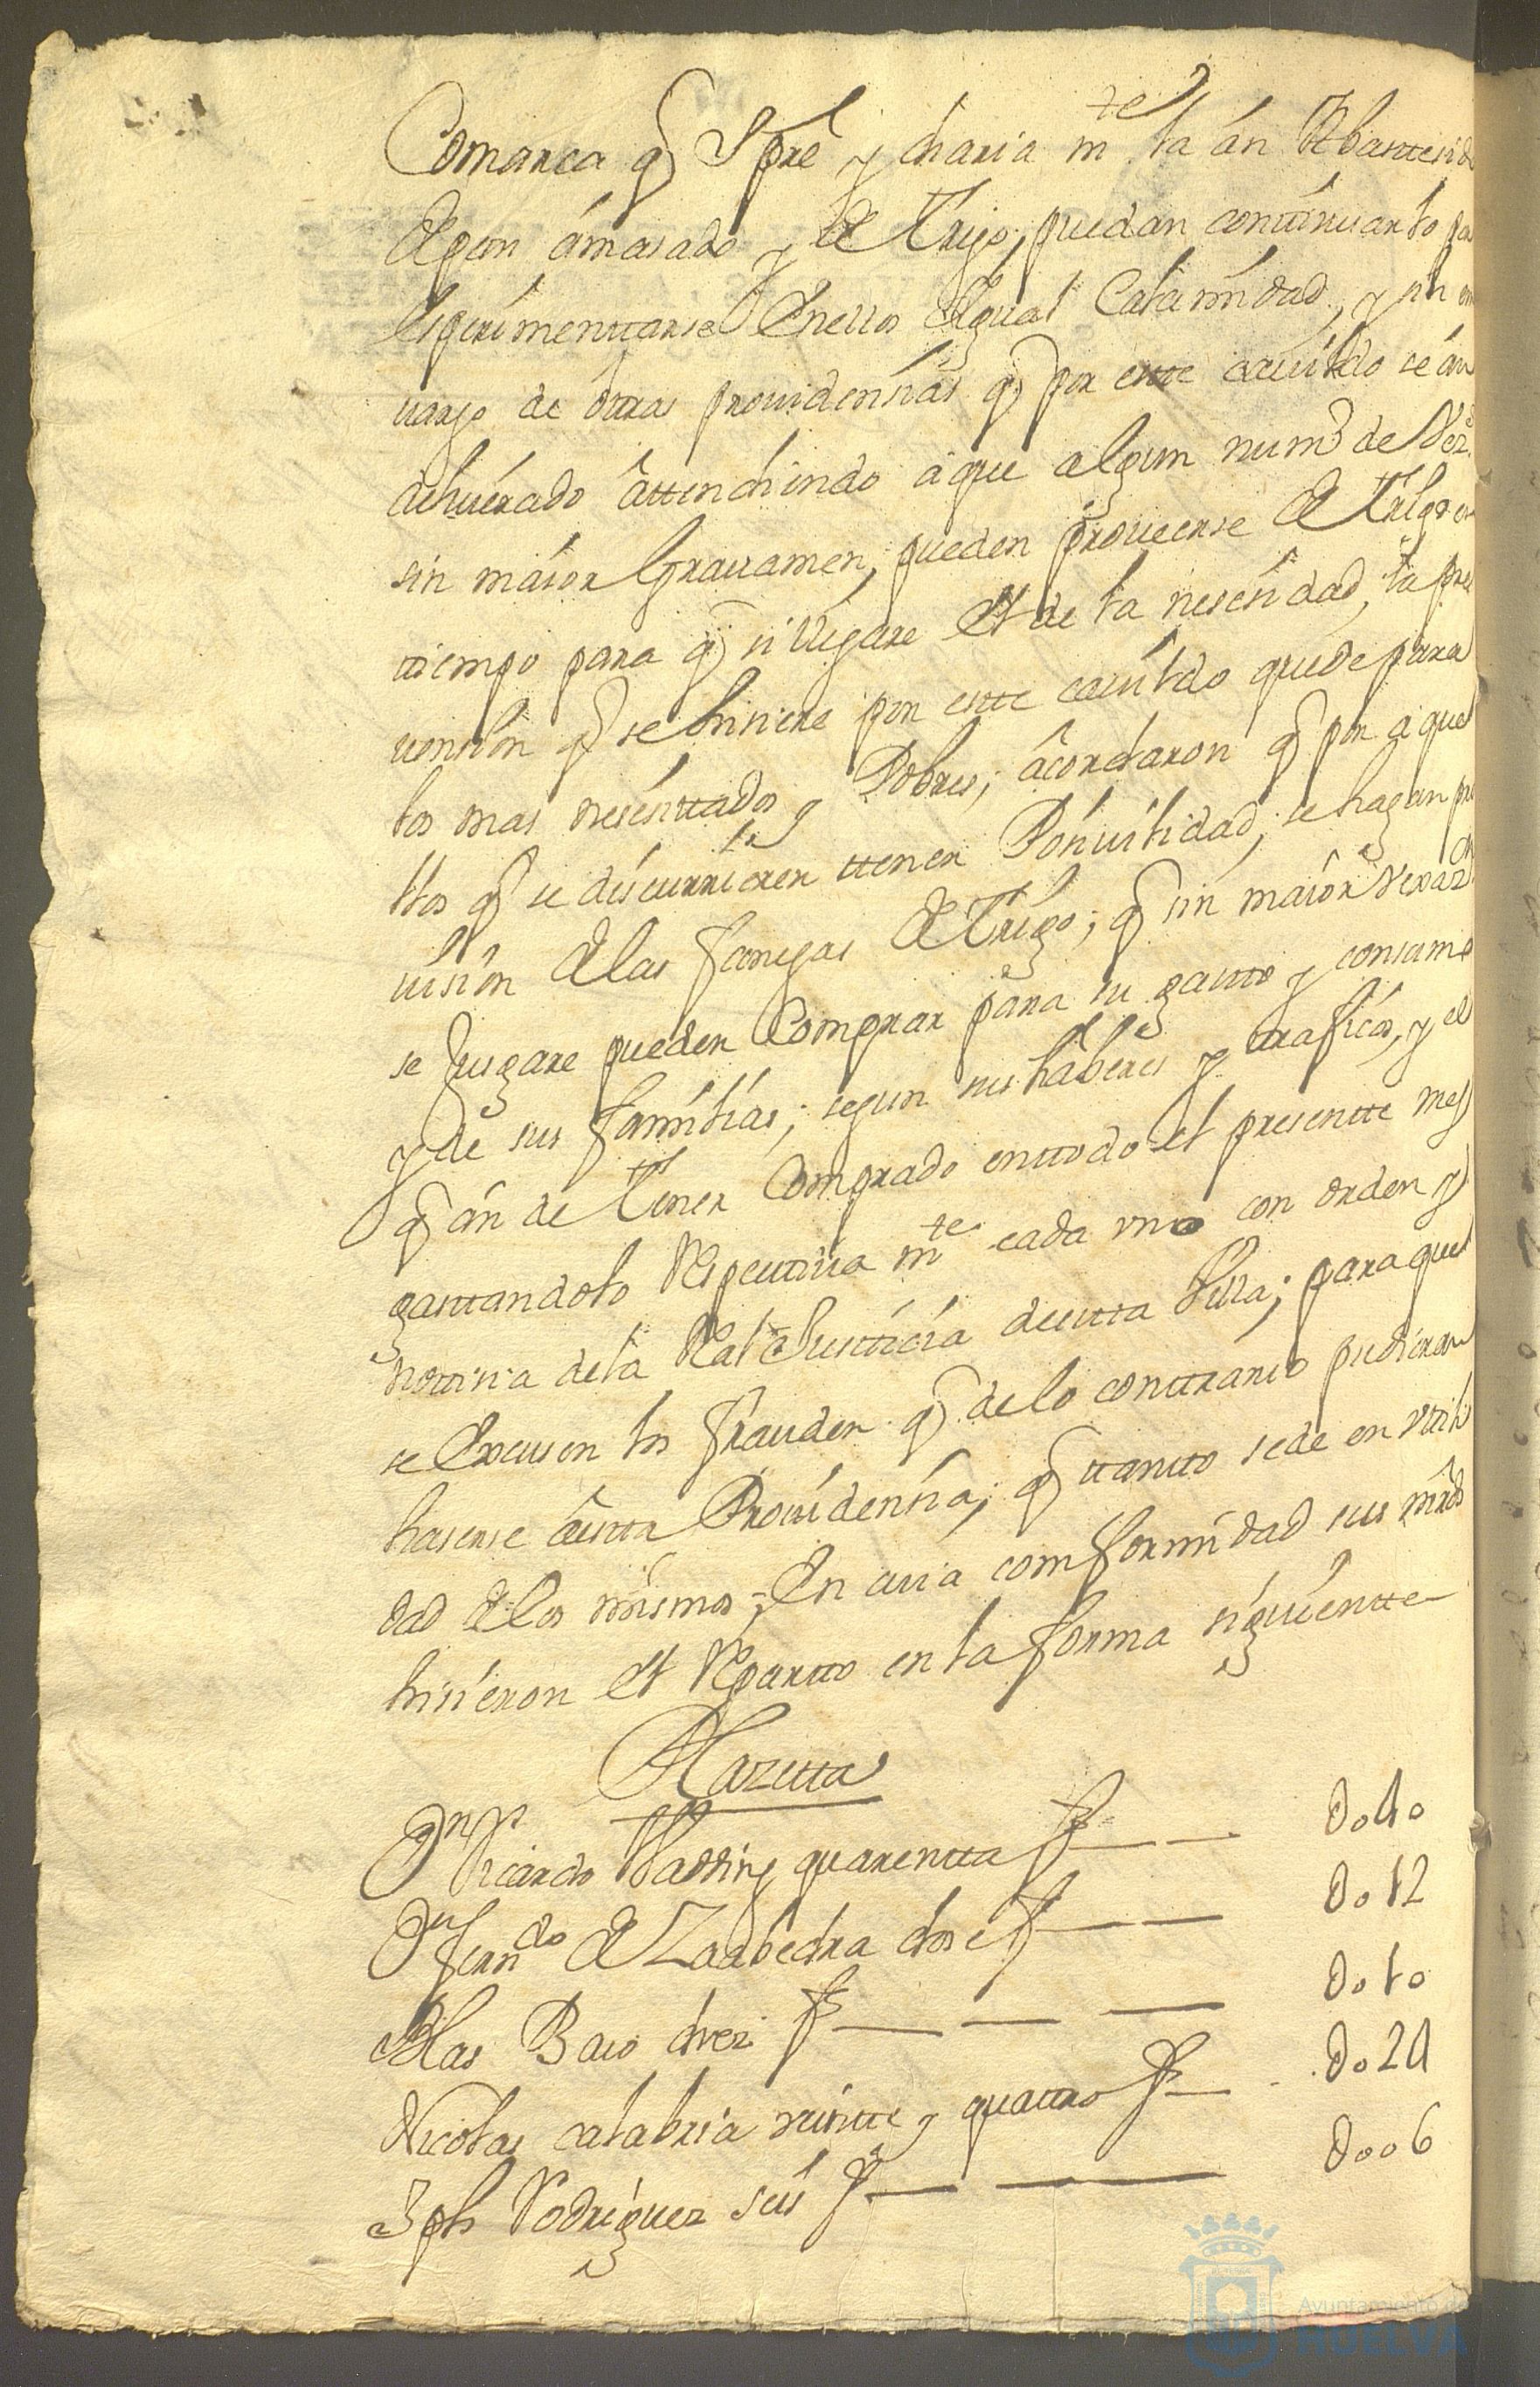 Comarca q Spre y diaria mte la an Abastesido
de pan amasado y de Trigo, puedan continuarlo por
esperimenttarse en ellos Ygual Calamidad, y sin em
vargo de otras providensias q por este cavildo se an
deliverado attendiendo a que algun numo de Vezs
sin maior Gravamen, pueden proveerse de Trigo en
tiempo para q si llegare el de la nesesidad, la pre
vension q se hisiere por este cavildo quede para
los mas nesesitados y Pobres; acordaron q por aque
llos q se discurrieren ttener Posivilidad, se hagan pro
vision de las fanegas de Trigo; q sin maior vexazon
se Jusgare pueden Comprar para su gasto y consumo
y de sus familias; segun sus haberes y traficos, y el
q an de Tener Comprado en ttodo el presentte mes
gastandolo Respectiva mte cada vno con orden y
notisia de la Real Justticia de estta Villa; para que
se Excusen los fraudes q de lo conttrario pudieran
haserse a estta Providensia; q ttantto sede en vtili
dad de los mismos; En cuia comformidad sus mrds
hisieron el Repartto en la forma siguientte
Plazetta
Dn Ricardo Wadding quarentta f 0040
Dn Ferndo de Zaabedra dose f 0012
Blas Baio diez f 0010
Nicolas Calabria veintte y quattro f 0024
Jph Rodriguez seis f 0006
Ayuntamiento de
HUELVA